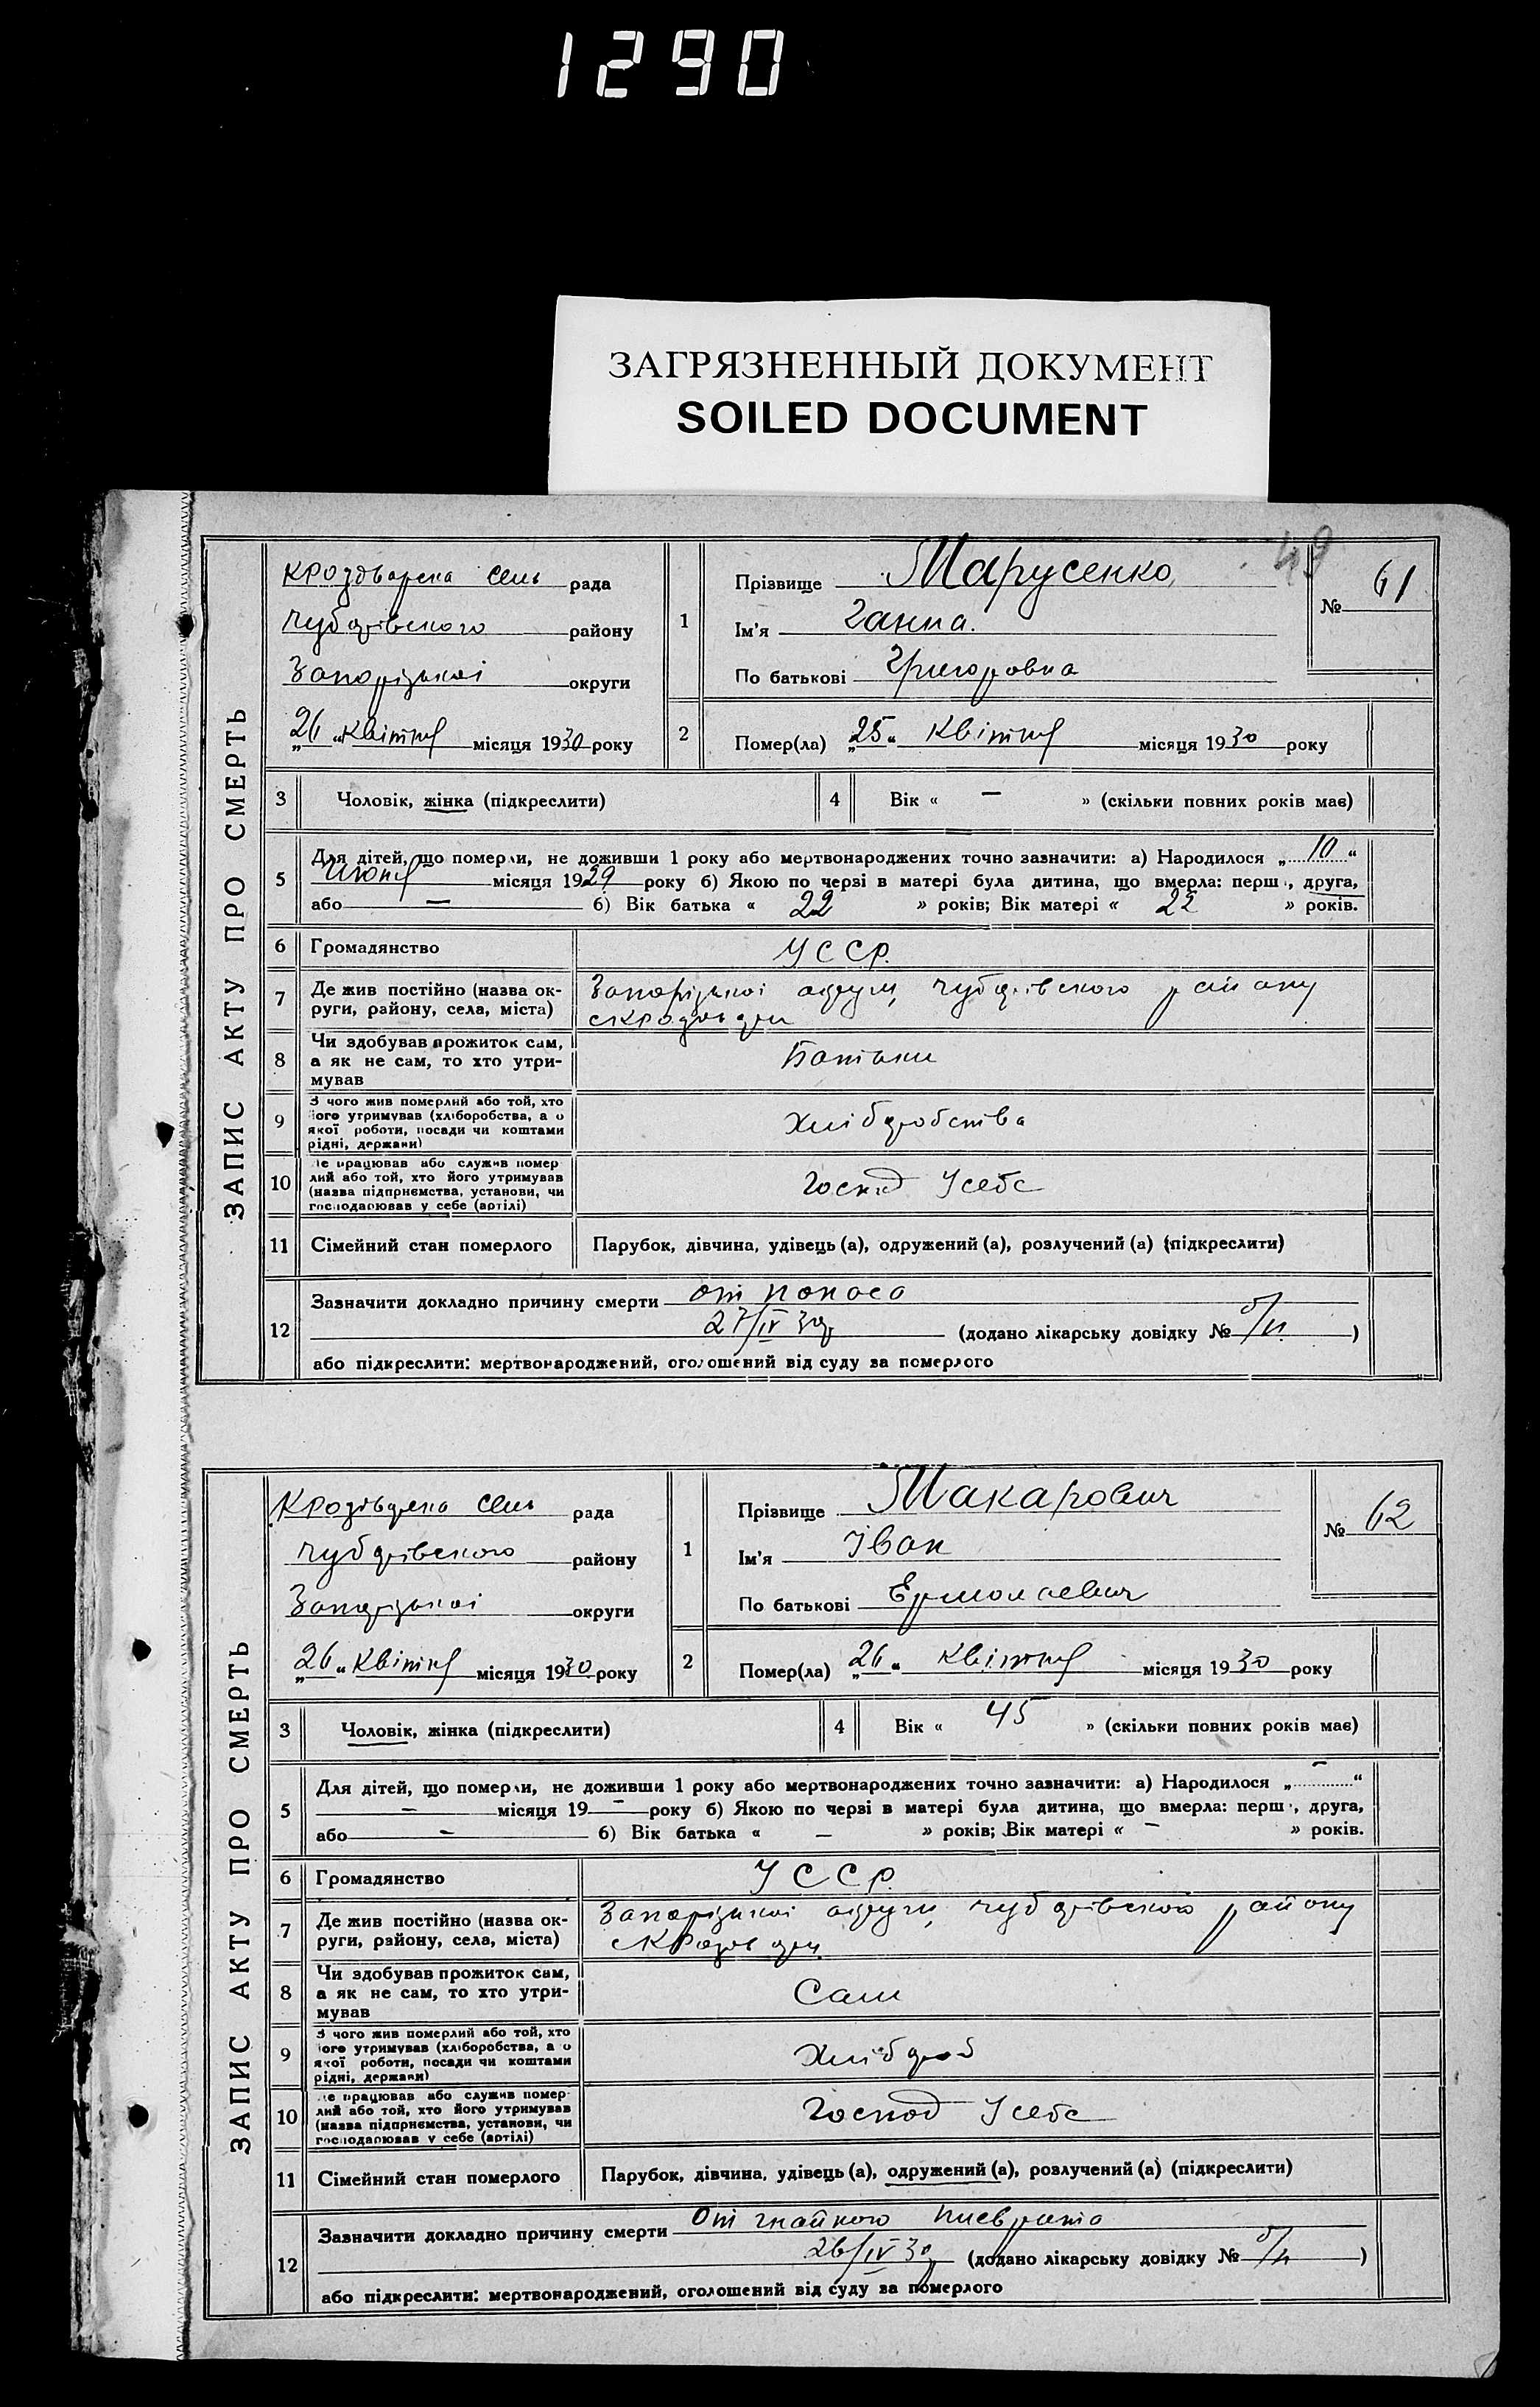 1290
ЗАГРЯЗНЕННЫЙ ДОКУМЕНТ
SOILED DOCUMENT
49
ЗАПИС АКТУ ПРО СМЕРТЬ
сель рада
Чубарівського району
Запорізької округи
„26“ Квітня місяця 1930 року
1
Прізвище Марусенко
Ім'я Ганна.
По батькові Григоровна
№ 61
2
Помер(ла) „25“ Квітня місяця 1930 року
3 Чоловік, жінка (підкреслити)
4 Вік « — » (скільки повних років має)
5 Для дітей, що померли, не доживши 1 року або мертвонароджених точно зазначити: а) Народилося „10“
Июня місяця 1929 року б) Якою по черві в матері була дитина, що вмерла: перш, друга,
або — б) Вік батька « 22 » років; Вік матері « 22 » років.
6 Громадянство УССР.
7 Де жив постійно (назва округи, району, села, міста) Запорізької округи, Чубарівського району
8 Чи здобував прожиток сам,
а як не сам, то хто утри-
мував Батьки
9 З чого жив померлий або той, хто
його утримував (хліборобства, а о
якої роботи, посади чи коштами
рідні, держави) Хліборобства
10 Де працював або служив помер
лий або той, хто його утримував
(назва підприємства, установи, чи
господарював у себе (артілі) Господ У себе
11 Сімейний стан померлого Парубок, дівчина, удівець (а), одружений (а), розлучений (а) (підкреслити)
12 Зазначити докладно причину смерти от поноса
27/IV 30р (додано лікарську довідку № б/н. )
або підкреслити: мертвонароджений, оголошений від суду за померлого
ЗАПИС АКТУ ПРО СМЕРТЬ
сель рада
Чубарівського району
Запорізької округи
„26“ Квітня місяця 1930 року
1
Прізвище Макарович
Ім'я Іван
По батькові Ермолаевич
№ 62
2
Помер(ла) „26“ Квітня місяця 1930 року
3 Чоловік, жінка (підкреслити)
4 Вік « 45 » (скільки повних років має)
5 Для дітей, що померли, не доживши 1 року або мертвонароджених точно зазначити: а) Народилося „ — “
— місяця 19 — року б) Якою по черві в матері була дитина, що вмерла: перш, друга,
або — б) Вік батька « — » років; Вік матері « — » років.
6 Громадянство УССР.
7 Де жив постійно (назва округи, району, села, міста) Запорізької округи, Чубарівського району
8 Чи здобував прожиток сам,
а як не сам, то хто утри-
мував Сам
9 З чого жив померлий або той, хто
його утримував (хліборобства, а о
якої роботи, посади чи коштами
рідні, держави) Хлібороб
10 Де працював або служив помер-
лий або той, хто його утримував
(назва підприємства, установи, чи
господарював у себе (артілі) Господ У себе
11 Сімейний стан померлого Парубок, дівчина, удівець (а), одружений (а), розлучений (а) (підкреслити)
12 Зазначити докладно причину смерти От гнайного плеврита
26/IV 30р (додано лікарську довідку № б/н )
або підкреслити: мертвонароджений, оголошений від суду за померлого